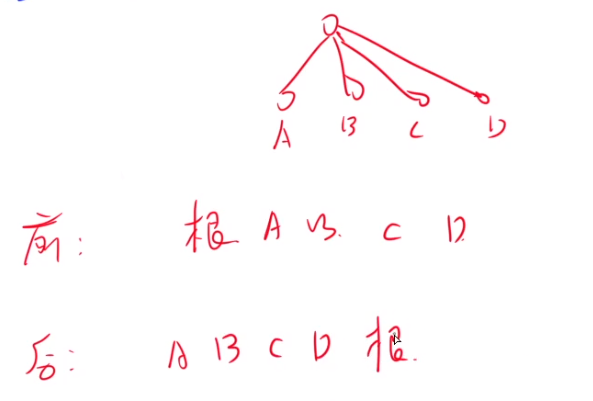 A B C D
前： 根 A B. C D.
后： A B C D 根.